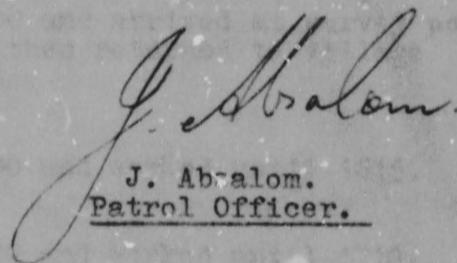 J. Absalom.
J. Absalom.
Patrol Officer.